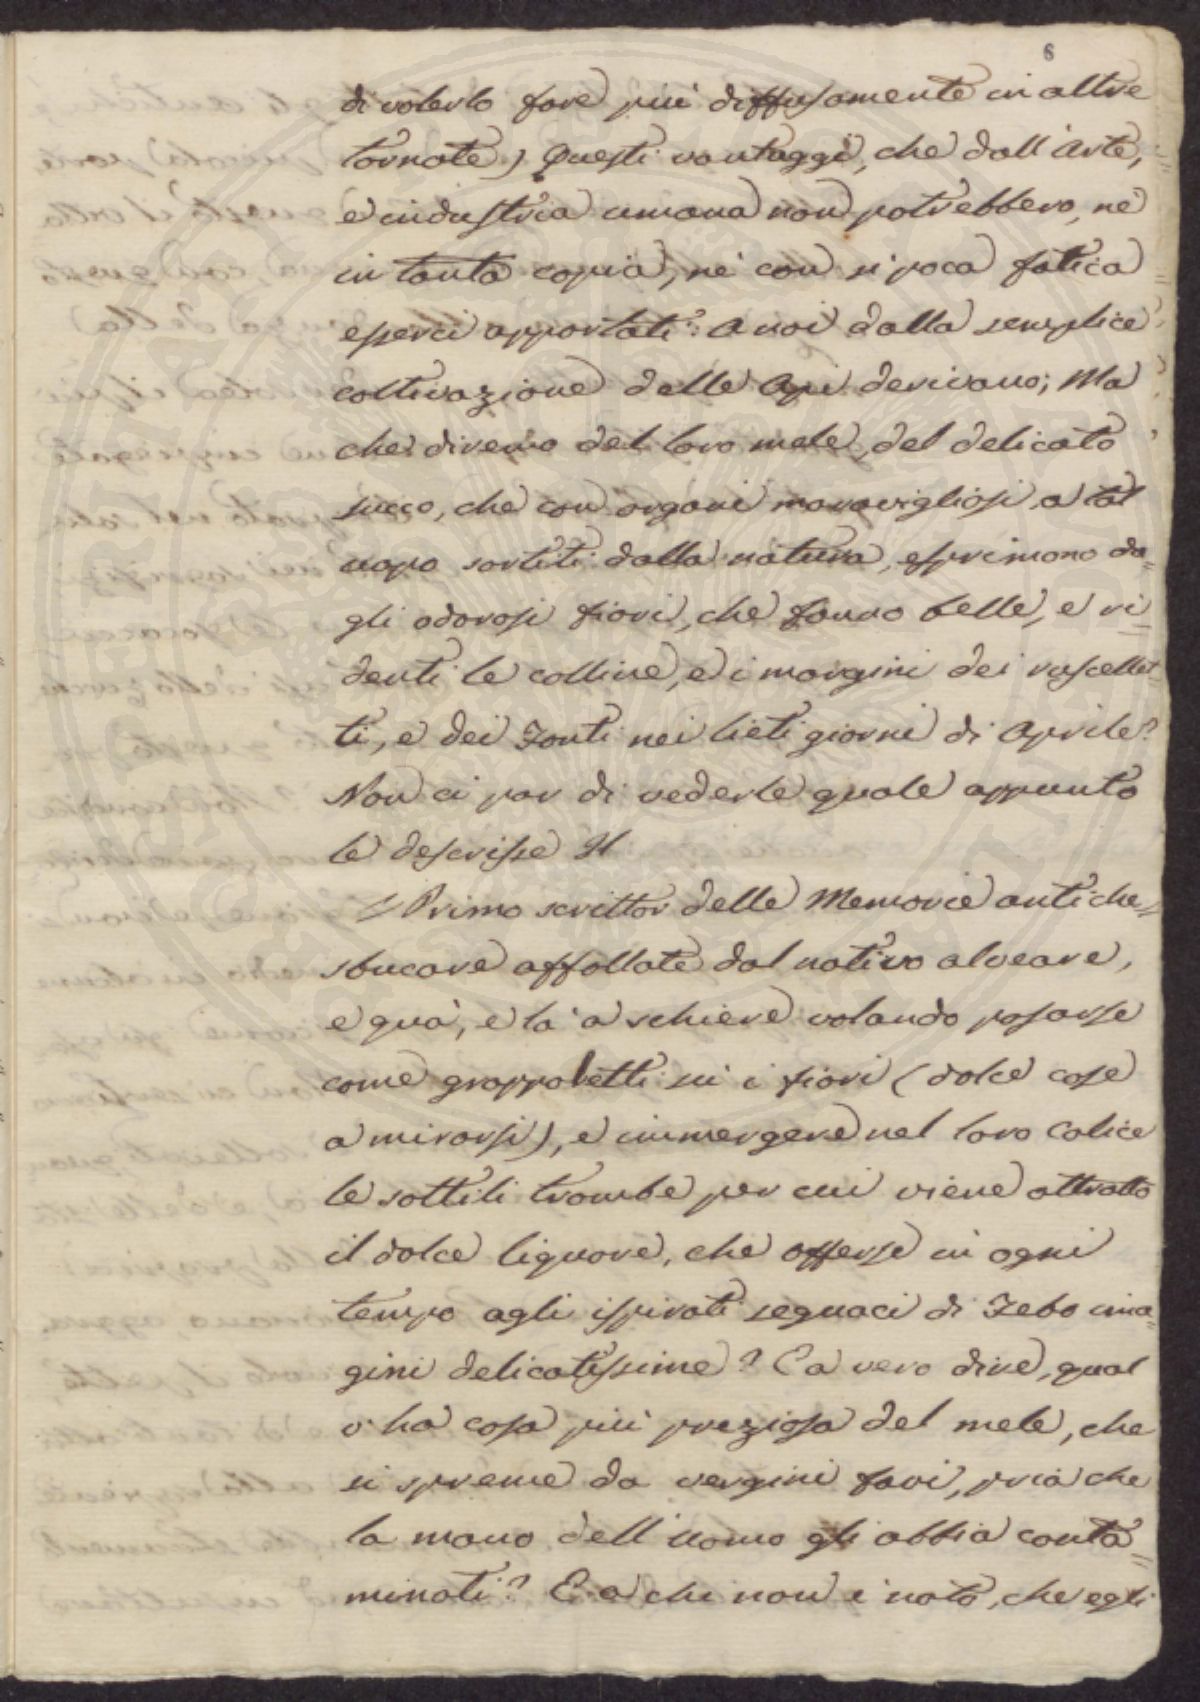 8
di volerlo fare più diffusamente in altre
tornate) Questi vantaggi, che dall'Arte,
e industria umana non potrebbero, nè
in tanta copia, nè con sì poca fatica
esserci apportati: a noi dalla semplice
coltivazione delle Api derivano; Ma
che diremo del loro mele, del delicato
succo, che con organi maravigliosi a tal
uopo sortiti dalla natura, esprimono da=
gli odorosi fiori, che fanno belle, e ri=
denti le colline, e i margini dei ruscellet
ti, e dei Fonti nei lieti giorni di Aprile?
Non ci par di vederle quale appunto
le descrisse Il
Primo scrittor delle Memorie antiche=
sbucare affollate dal nativo alveare,
e quà, e là a schiere volando posarse
come grappoletti su i fiori (dolce cose
a mirarsi), e immergere nel loro Calice
le sottili trombe per cui viene attratto
il dolce liquore, che offerse in ogni
tempo agli ispirati seguaci di Febo ima=
gini delicatissime? E a vero dire, qual
v'ha cosa più preziosa del mele, che
si spreme da vergini favi, pria che
la mano dell'uomo gli abbia conta=
minati? E a chi non è noto, che egli